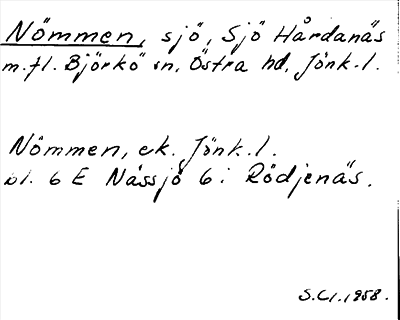 Nömmen, sjö, Sjö Hårdanäs
m.fl. Björkö sn, Östra hd, Jönk.l.
Nömmen, ek. Jönk.l.
bl. 6 E Nässjö 6 i Rödjenäs.
S.Cl.1958.